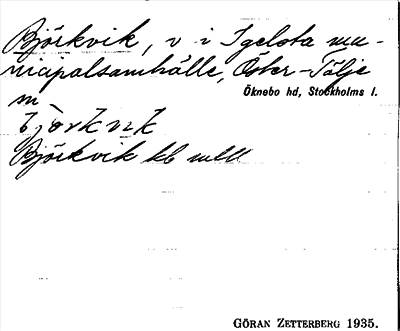 Björkvik, v i Igelsta mu-
nicipalsamhälle, Öster-Tälje
Öknebo hd, Stockholms l.
sn
björkvik
Björkvik kb
GÖRAN ZETTERBERG 1935.